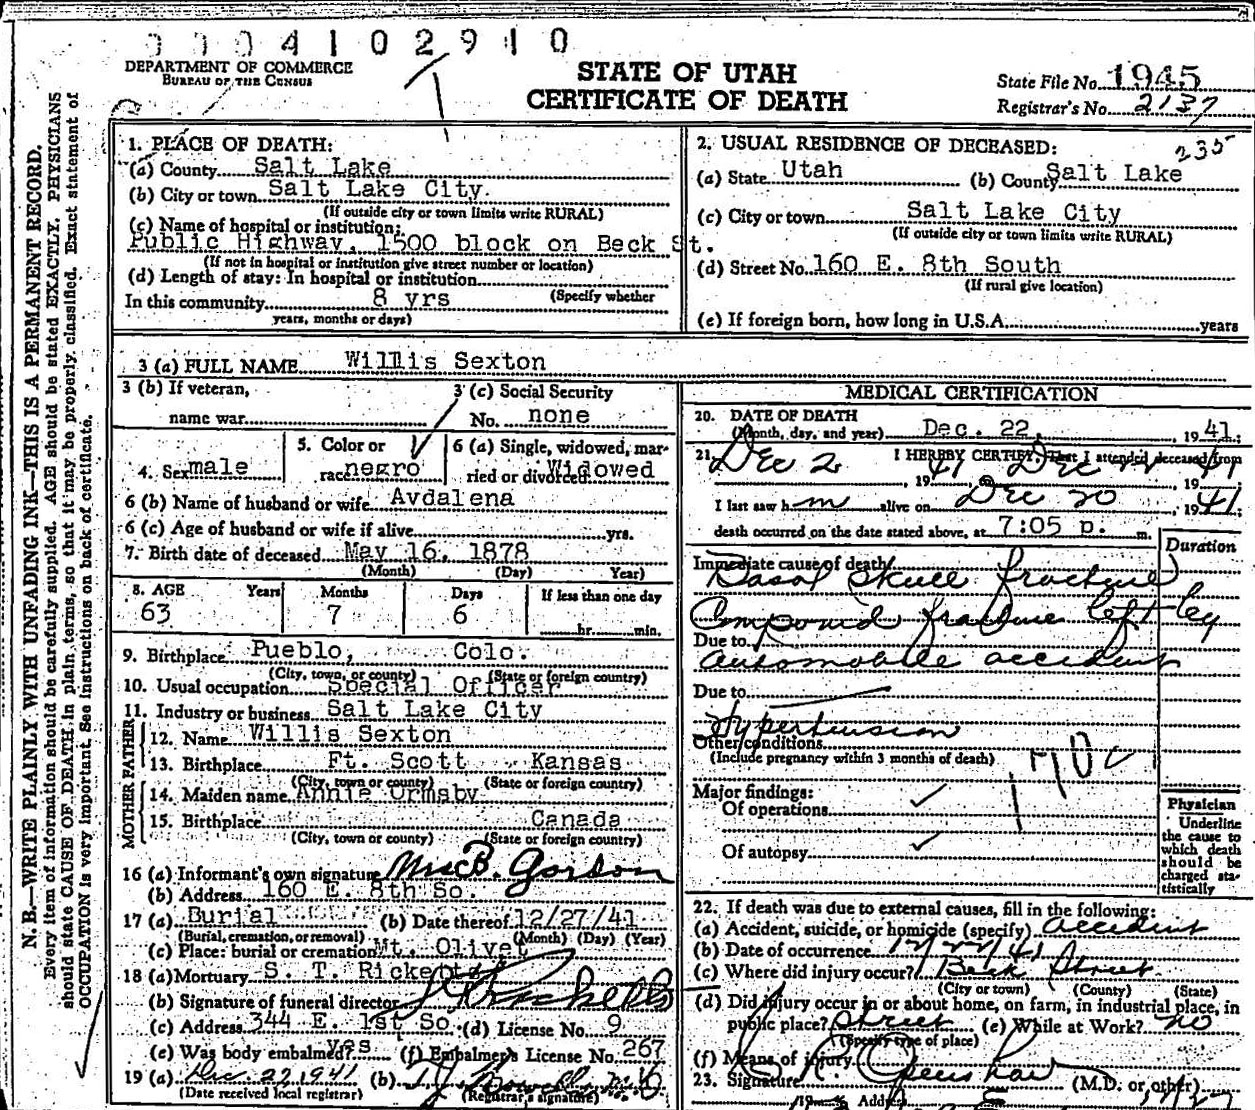 0 0 0 4 1 0 2 9 1 0
DEPARTMENT OF COMMERCE
BUREAU OF THE CENSUS
STATE OF UTAH
CERTIFICATE OF DEATH
State File No. 1945
Registrar's No. 2137
235
N. B.—WRITE PLAINLY WITH UNFADING INK—THIS IS A PERMANENT RECORD.
Every item of information should be carefully supplied. AGE should be stated EXACTLY. PHYSICIANS
should state CAUSE OF DEATH in plain terms, so that it may be properly classified. Exact statement of
OCCUPATION is very important. See instructions on back of certificate.
1. PLACE OF DEATH:
(a) County Salt Lake
(b) City or town Salt Lake City.
(If outside city or town limits write RURAL)
(c) Name of hospital or institution:
Public Highway, 1500 block on Beck St.
(If not in hospital or institution give street number or location)
(d) Length of stay: In hospital or institution
In this community 8 yrs (Specify whether
years, months or days)
2. USUAL RESIDENCE OF DECEASED:
(a) State Utah (b) County Salt Lake
(c) City or town Salt Lake City
(If outside city or town limits write RURAL)
(d) Street No. 160 E. 8th South
(If rural give location)
(e) If foreign born, how long in U.S.A. years
3 (a) FULL NAME Willis Sexton
3 (b) If veteran,
name war
3 (c) Social Security
No. none
4. Sex male
5. Color or
race negro
6 (a) Single, widowed, mar-
ried or divorced Widowed
6 (b) Name of husband or wife Avdalena
6 (c) Age of husband or wife if alive yrs.
7. Birth date of deceased May 16, 1878
(Month) (Day) Year)
8. AGE Years Months Days If less than one day
63 7 6 hr. min.
9. Birthplace Pueblo, Colo.
(City, town, or county) (State or foreign country)
10. Usual occupation Special Officer
11. Industry or business Salt Lake City
FATHER
12. Name Willis Sexton
13. Birthplace Ft. Scott Kansas
(City, town or county) (State or foreign country)
MOTHER
14. Maiden name Annie Ormsby
15. Birthplace Canada
(City, town or county) (State or foreign country)
16 (a) Informant's own signature Mrs B. Gordon
(b) Address 160 E. 8th So.
17 (a) Burial (b) Date thereof 12/27/41
(Burial, cremation, or removal) (Month) (Day) (Year)
(c) Place: burial or cremation Mt. Olivet
18 (a) Mortuary S. T. Ricketts
(b) Signature of funeral director Ricketts
(c) Address 344 E. 1st So. (d) License No. 9
(e) Was body embalmed? yes (f) Embalmer's License No. 267
19 (a) Dec 22 1941 (b)
(Date received local registrar) (Registrar's signature)
MEDICAL CERTIFICATION
20. DATE OF DEATH
(Month, day, and year) Dec. 22, 1941;
21. I HEREBY CERTIFY, That I attended deceased from
Dec 2, 1941 Dec 22 1941
I last saw h m alive on Dec 20, 1941;
death occurred on the date stated above, at 7:05 p. m.
Duration
Immediate cause of death
Basal skull fracture
Compound fracture left leg
Due to
automobile accident
Due to
Hypertension
Other conditions
(Include pregnancy within 3 months of death)
170c
Major findings:
Of operations
Of autopsy
Physician
Underline
the cause to
which death
should be
charged sta-
tistically
22. If death was due to external causes, fill in the following:
(a) Accident, suicide, or homicide (specify) accident
(b) Date of occurrence 12/22/41
(c) Where did injury occur? Beck Street
(City or town) (County) (State)
(d) Did injury occur in or about home, on farm, in industrial place, in
public place? Street (e) While at Work? no
(Specify type of place)
(f) Means of injury
23. Signature (M.D. or other)
Address